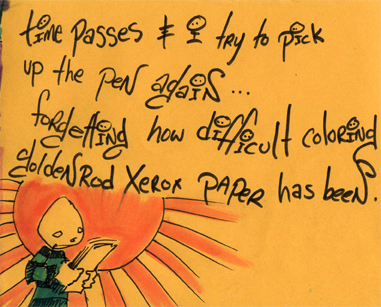 time passes & I try to pick
up the pen again...
forgetting how difficult coloring
goldenrod xerox PAPER has been.